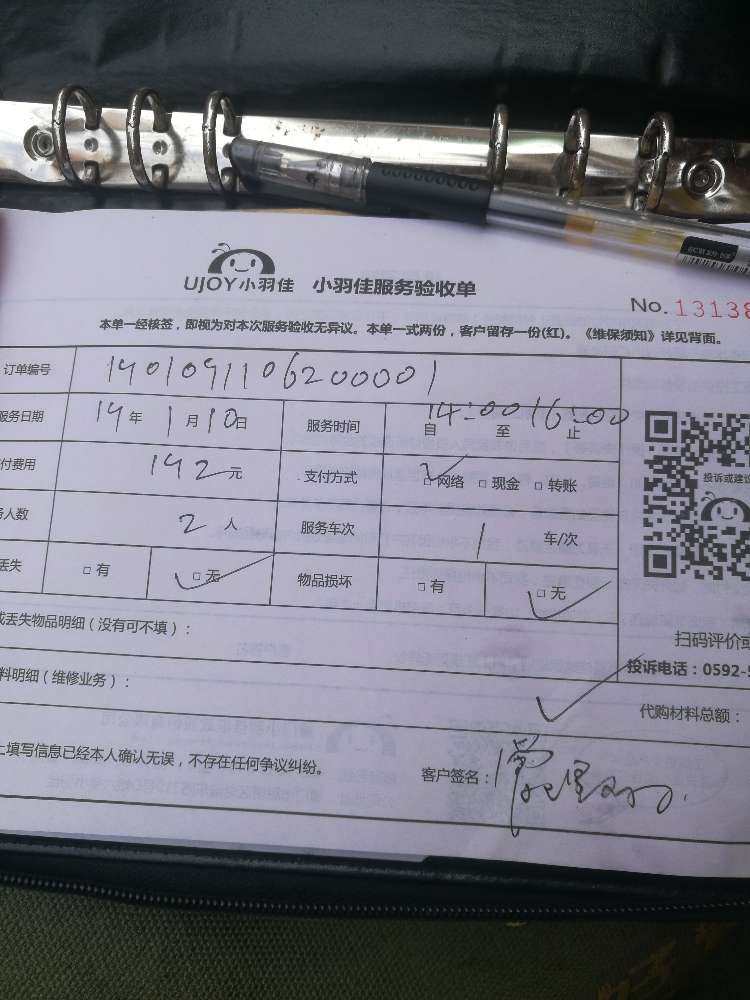 UJOY小羽佳 小羽佳服务验收单
No. 13138
本单一经核签，即视为对本次服务验收无异议。本单一式两份，客户留存一份(红)。《维保须知》详见背面。
订单编号 1901091106200001
服务日期 19年 1月10日 服务时间 自14:00至16:00止
付费用 192元 支付方式 ☑网络 □现金 □转账
务人数 2人 服务车次 1 车/次
丢失 □有 ☑无 物品损坏 □有 ☑无
投诉或建议
或丢失物品明细（没有可不填）：
扫码评价或
投诉电话：0592-5
料明细（维修业务）：
代购材料总额：
上填写信息已经本人确认无误，不存在任何争议纠纷。
客户签名：